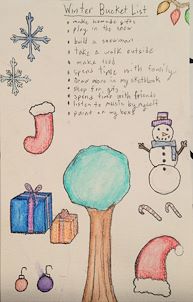 Winter Bucket List
• make homemade gifts
• play in the snow
• build a snowman
• take a walk outside
• make food
• Spend time with family
• Draw more in my sketchbook
• Shop for gifts
• spend time with friends
• listen to music by myself
• paint on my book